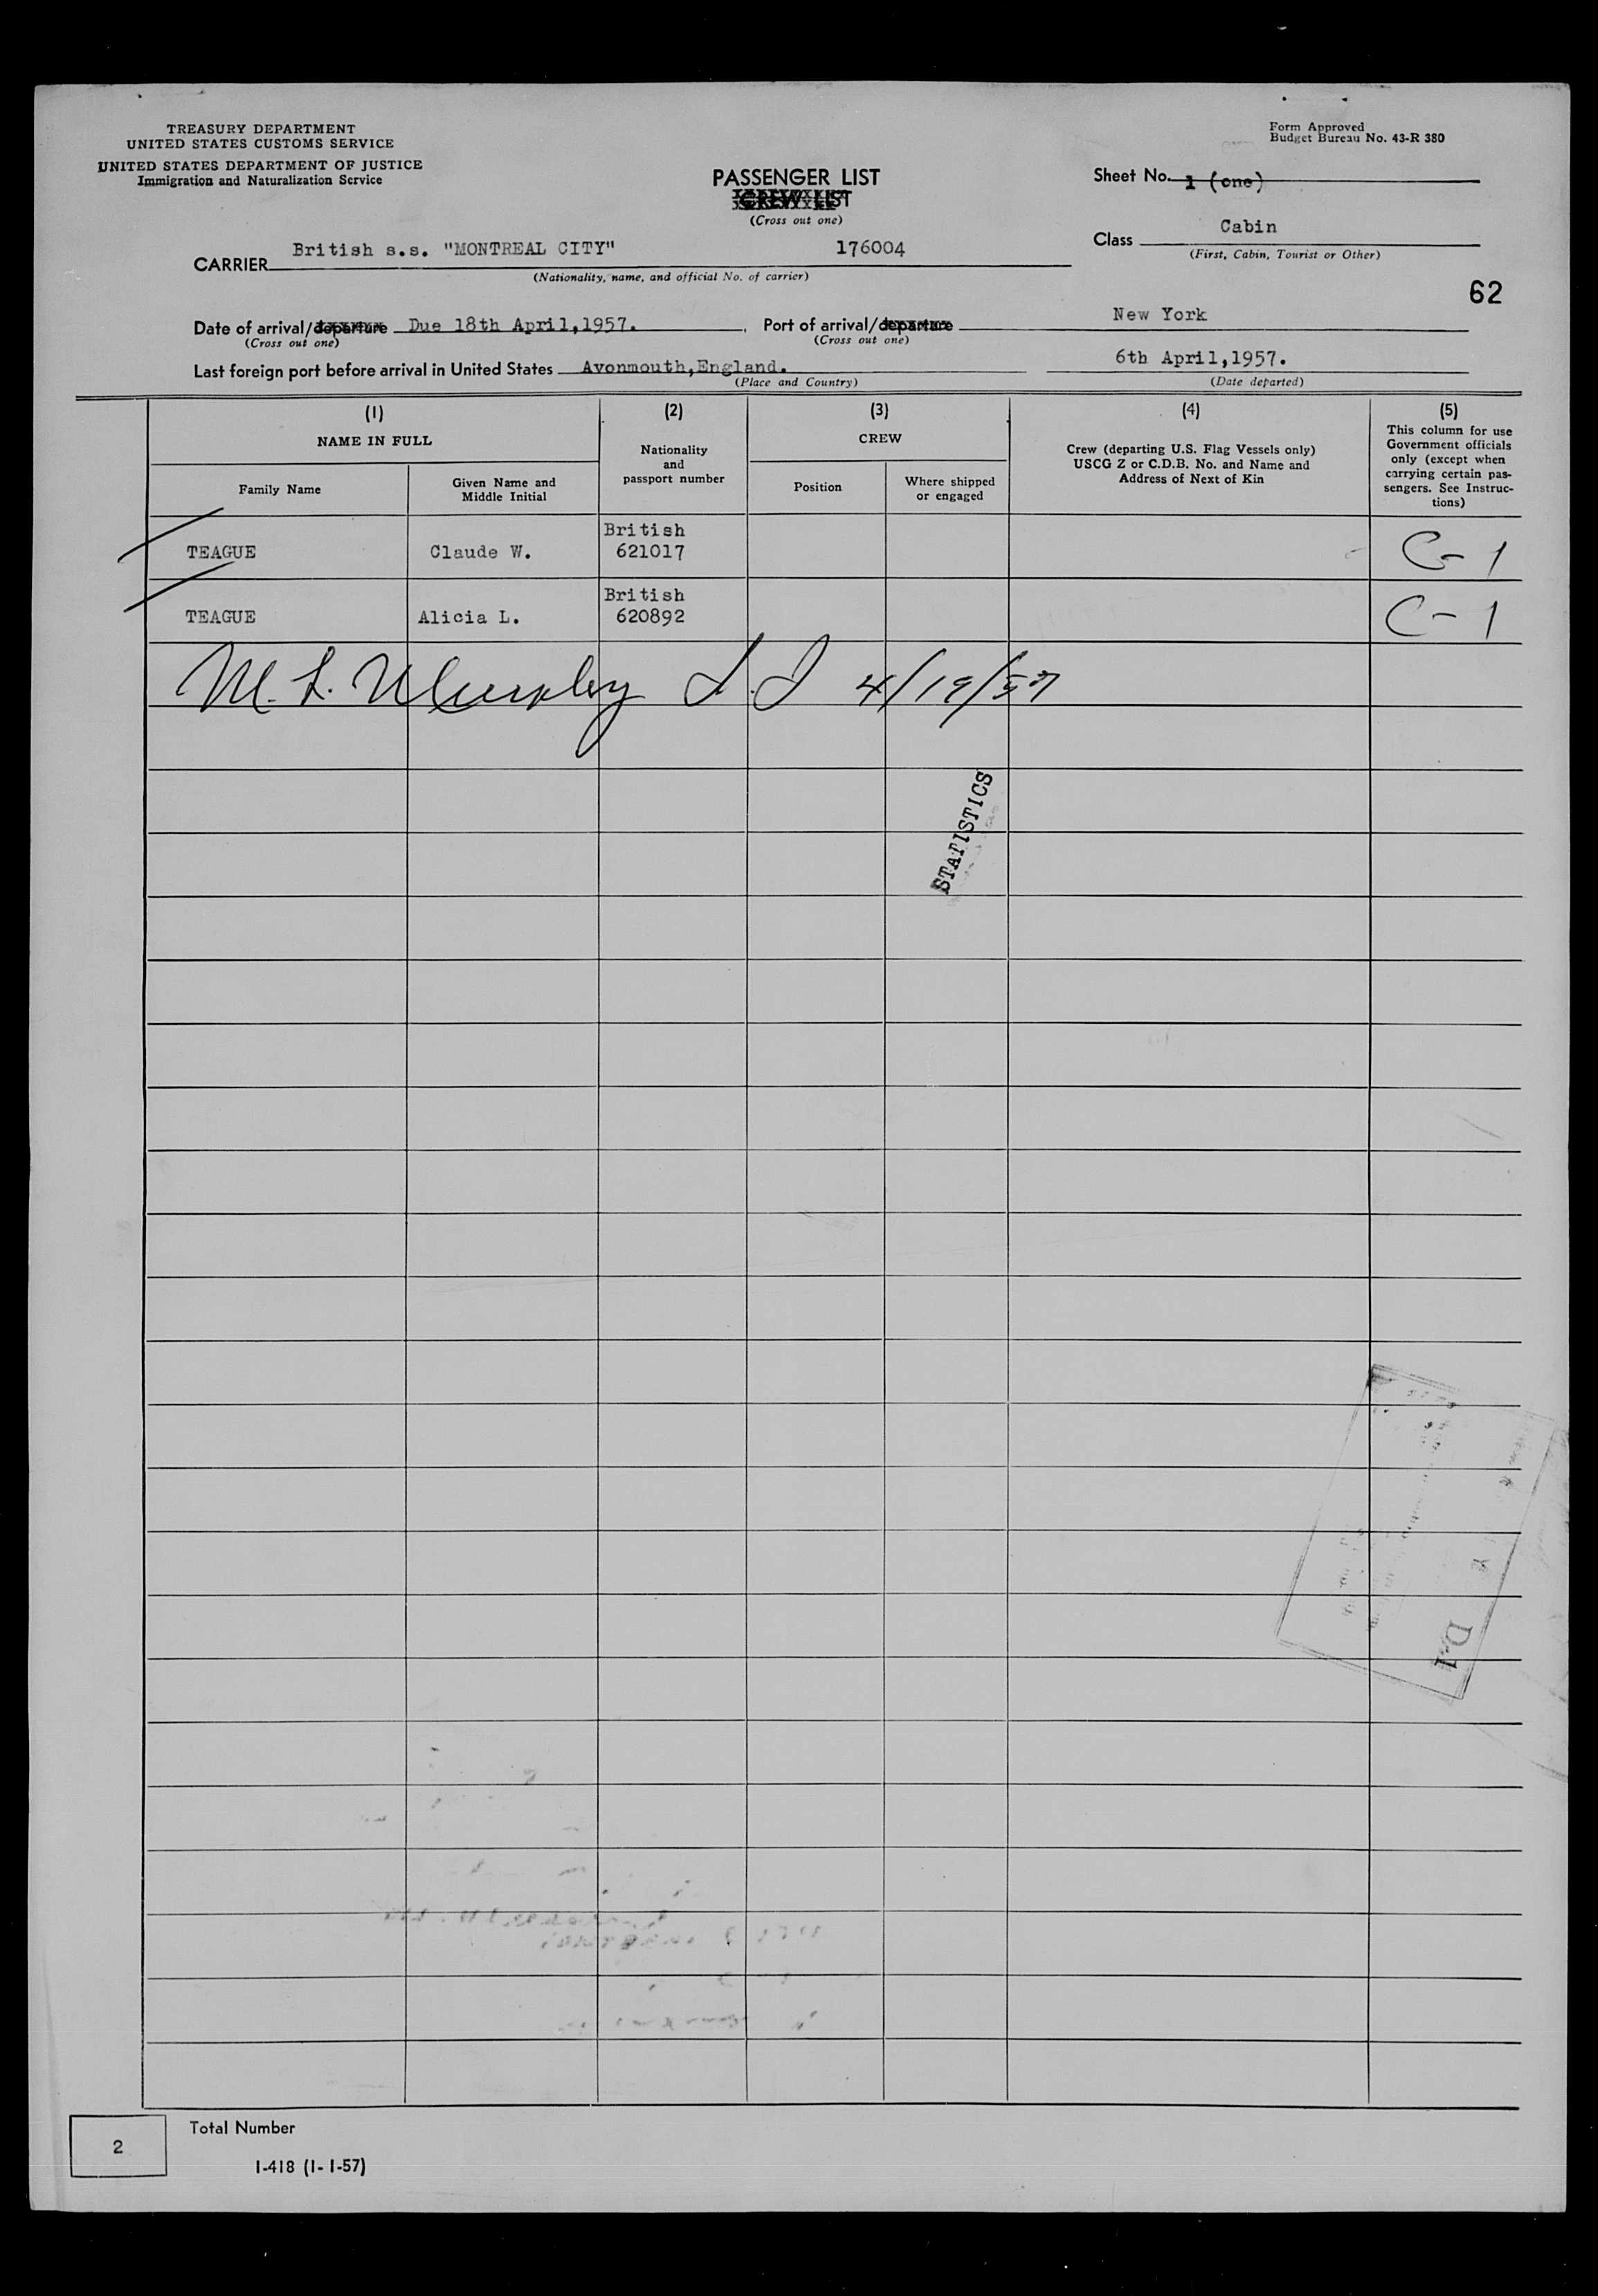 TREASURY DEPARTMENT
UNITED STATES CUSTOMS SERVICE
UNITED STATES DEPARTMENT OF JUSTICE
Immigration and Naturalization Service
Form Approved
Budget Bureau No. 43-R 380
PASSENGER LIST
CREW LIST
(Cross out one)
Sheet No. 1 (one)
Class Cabin
(First, Cabin, Tourist or Other)
CARRIER British s.s. "MONTREAL CITY" 176004
(Nationality, name, and official No. of carrier)
62
Date of arrival/departure Due 18th April,1957. Port of arrival/departure New York
(Cross out one) (Cross out one)
Last foreign port before arrival in United States Avonmouth,England. 6th April,1957.
(Place and Country) (Date departed)
(1) (2) (3) (4) (5)
NAME IN FULL
Family Name
Given Name and
Middle Initial
Nationality
and
passport number
CREW
Position
Where shipped
or engaged
Crew (departing U.S. Flag Vessels only)
USCG Z or C.D.B. No. and Name and
Address of Next of Kin
This column for use
Government officials
only (except when
carrying certain pas-
sengers. See Instruc-
tions)
British
TEAGUE Claude W. 621017 C-1
British
TEAGUE Alicia L. 620892 C-1
M. L. Murphy I.I 4/19/57
STATISTICS
D-1
2
Total Number
I-418 (1-1-57)